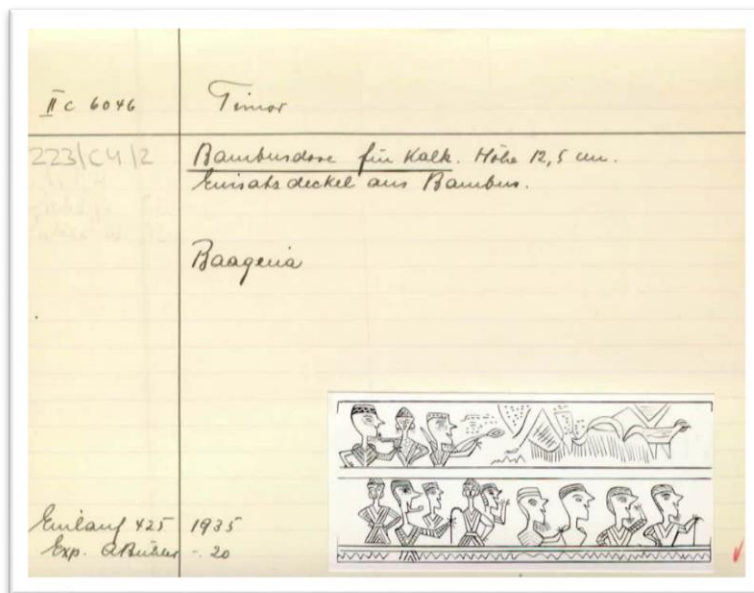 II c 6046
Timor
223/C4/2
Bambusdose für Kalk. Höhe 12,5 cm.
Einsatzdeckel aus Bambus.
Baaguia
Einlauf 425
1935
Exp. A Bühler
- . 20